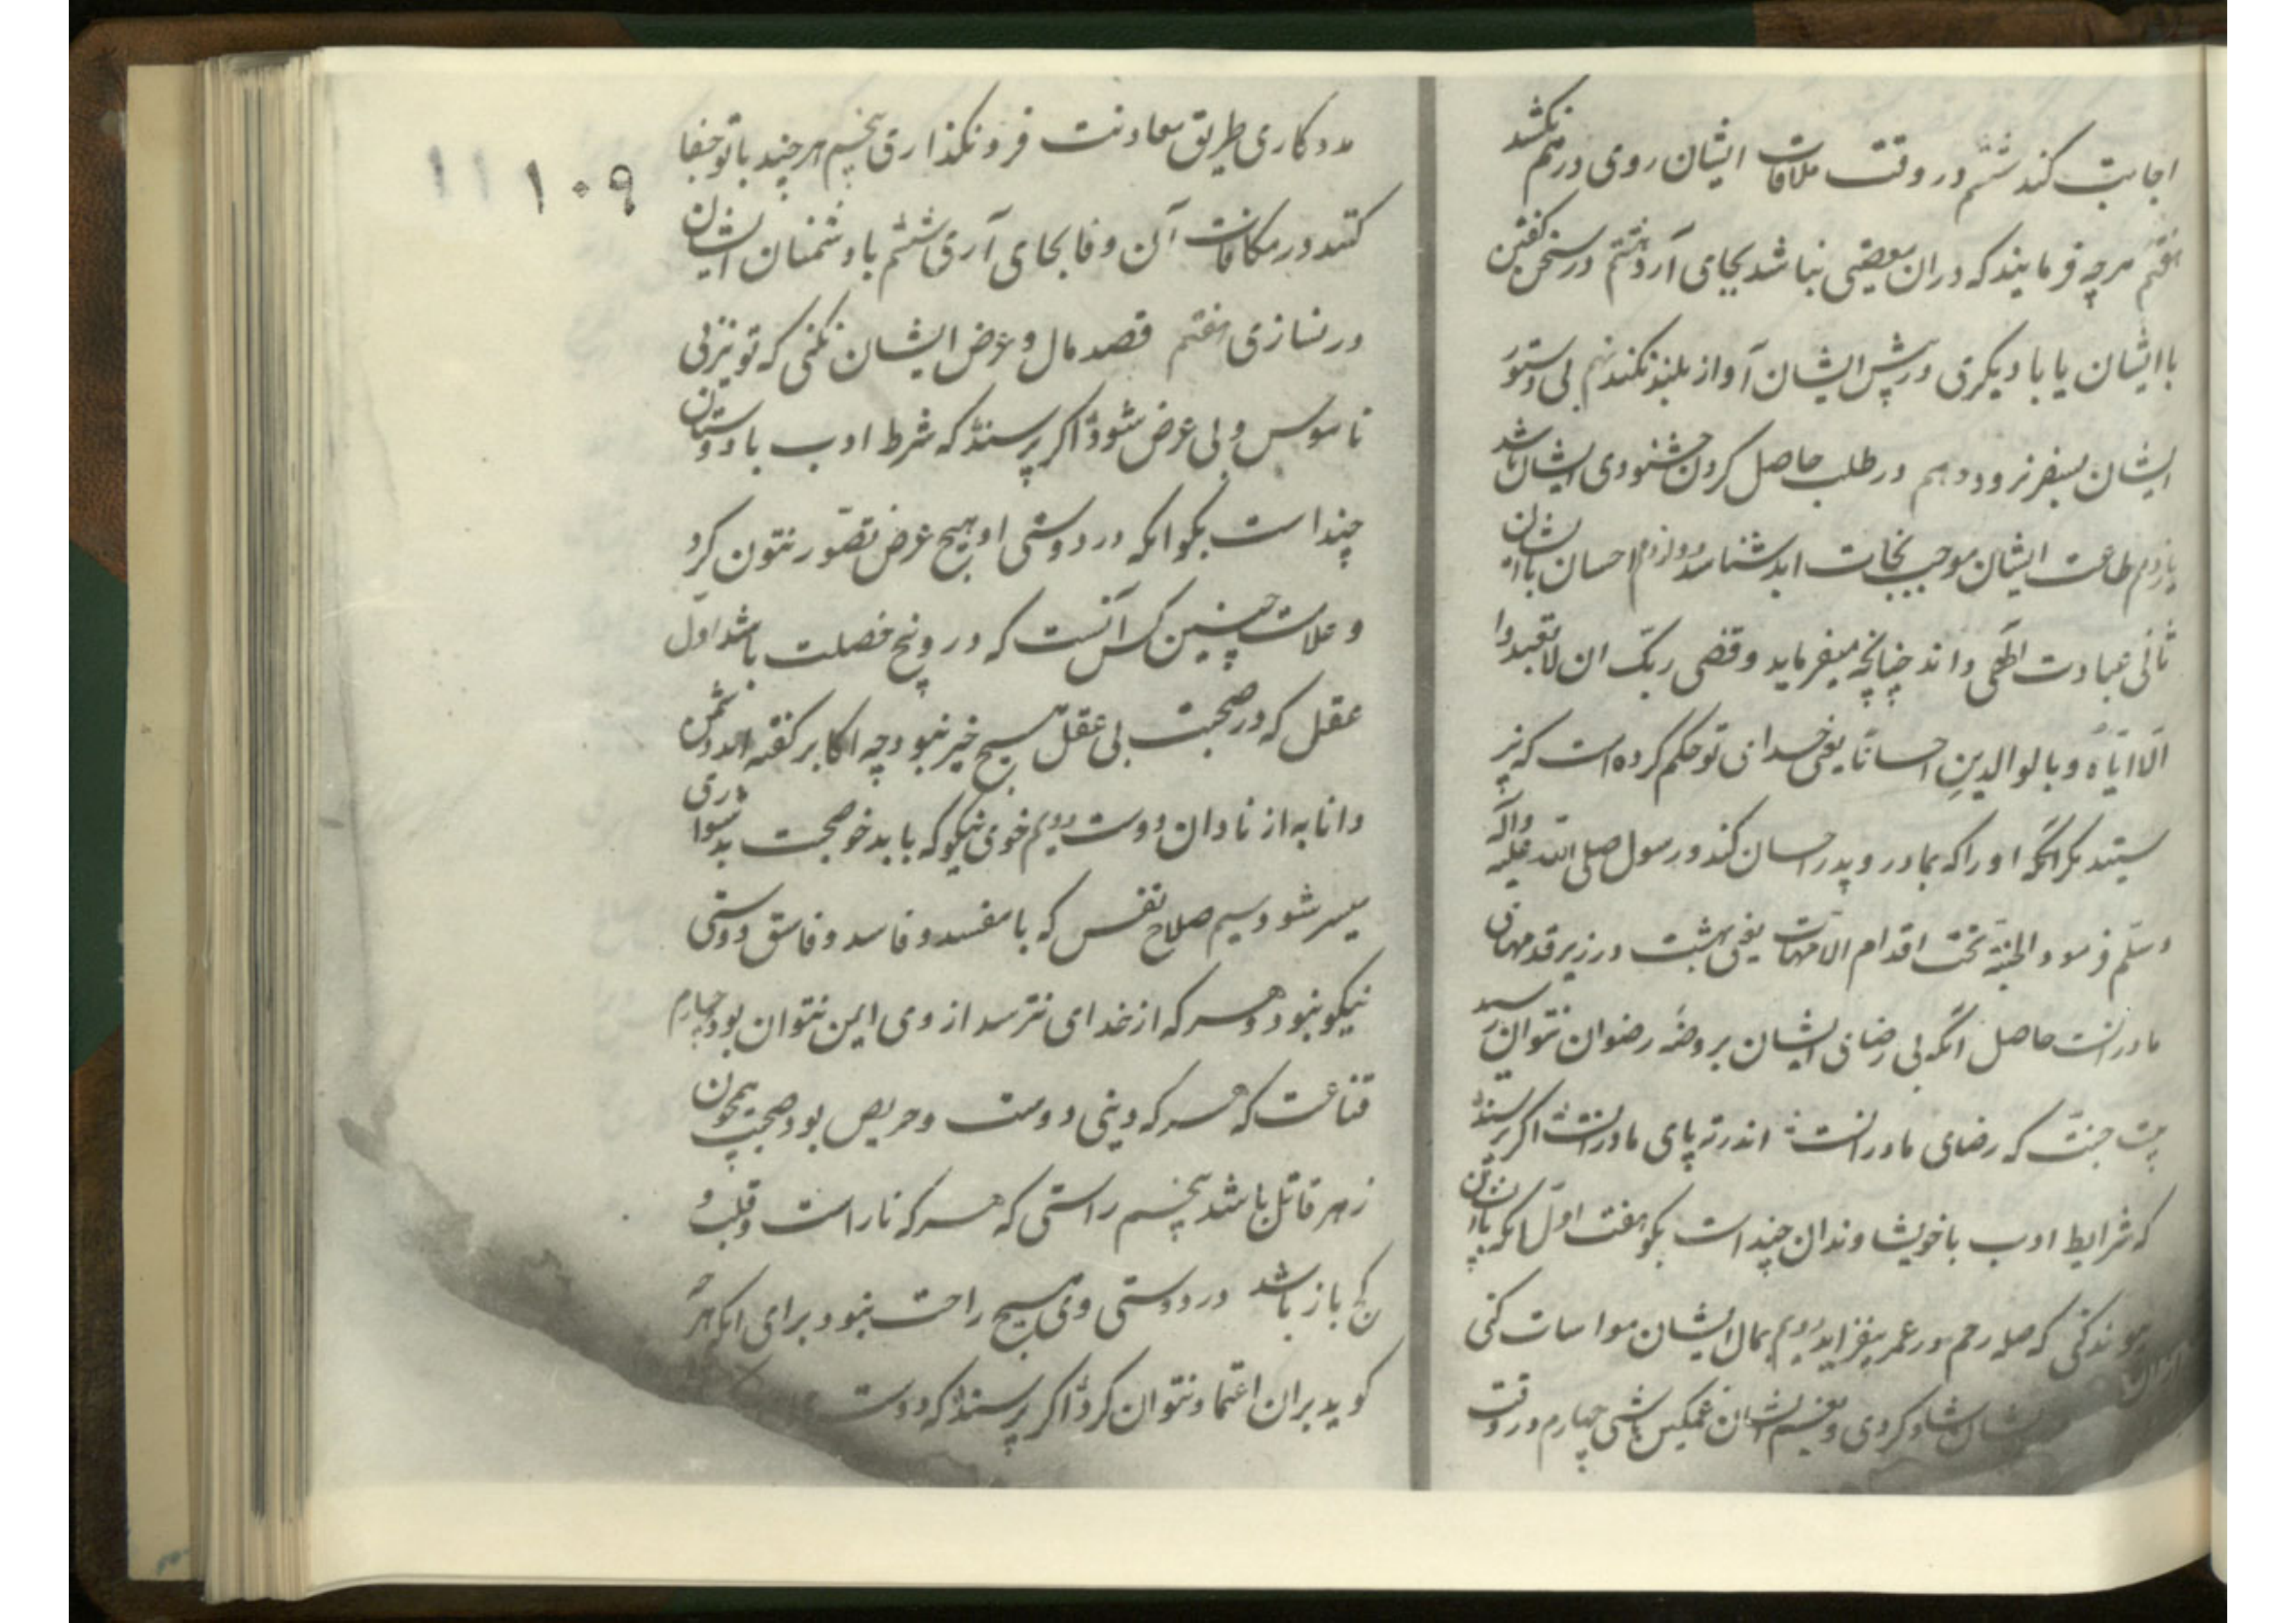 اجابت کند ششم در وقت ملاقات ایشان روی درهم نکشد
هفتم هرچه فرمایند که دران معصیتی نباشد بجای آرد هشتم در سخن گفتن
با ایشان یا با دیگری در پیش ایشان آواز بلند نکند نهم بی دستور
ایشان بسفر نرود دهم در طلب حاصل کردن خشنودی ایشان باشد
یازدهم طاعت ایشان موجب نجات ابد شناسد دوازدهم احسان با ایشان
ثانی عبادت الهی داند چنانچه میفرماید وقضی ربک ان لا تعبدوا
الا ایاه و بالوالدین احسانا یعنی خدای تو حکم کرده است که نپر
ستید مگر اورا که بمادر و پدر احسان کند و رسول صلی الله علیه وآله
وسلم فرمود الجنة تحت اقدام الامهات یعنی بهشت در زیر قدمهای
مادرانست حاصل انکه بی رضای ایشان بروضه رضوان نتوان رسید
بیت جنت که رضای مادرانست اندر ته پای مادرانست اکر پرسند
که شرایط ادب با خویشاوندان چند است بکو هفت اول انکه با ایشان
پیوند کنی که صله رحم در عمر بیفزاید دویم بمال ایشان مواسات کنی
ایشان شاد کردی و بغم ایشان غمکین باشی چهارم در وقت
۱۰۹
مددکاری طریق معاونت فرو نکذاری پنجم هر چند با تو جفا
کنند در مکافات آن وفا بجای آری ششم با دشمنان ایشان
در نسازی هفتم قصد مال و عرض ایشان نکنی که تو نیز بی
ناموس و بی عرض شوی اکر پرسند که شرط ادب با دوستان
چند است بکو انکه در دوستی او هیچ غرض تصور نتون کرد
و علامت چنین کس آنست که در و پنج خصلت باشد اول
عقل که در صحبت بی عقل هیچ خیر نبود چه اکابر کفته اند دشمن
دانا به از نادان دوست دویم خوی نیکو که با بد خو صحبت بدشواری
میسر شود سیم صلاح نفس که با مفسد و فاسد و فاسق دوستی
نیکو نبود و هر که از خدای نترسد از وی ایمن نتوان بود چهارم
قناعت که هر که دینی دوست و حریص بود صحبتش همچون
زهر قاتل باشد پنجم راستی که هر که ناراست و قلب و
کج باز باشد در دوستی وی هیچ راحت نبود برای انکه هرچه
کوید بران اعتماد نتوان کرد اکر پرسند که دوست